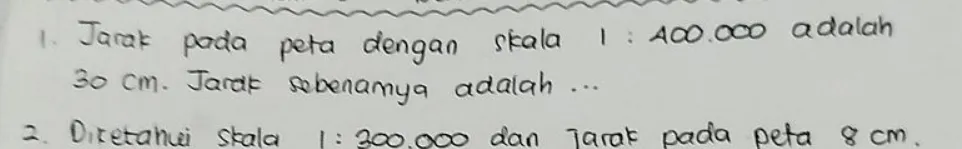 1. Jarak pada peta dengan skala 1 : 400.000 adalah
30 cm. Jarak sebenarnya adalah ...
2. Diketahui skala 1 : 300.000 dan jarak pada peta 8 cm.